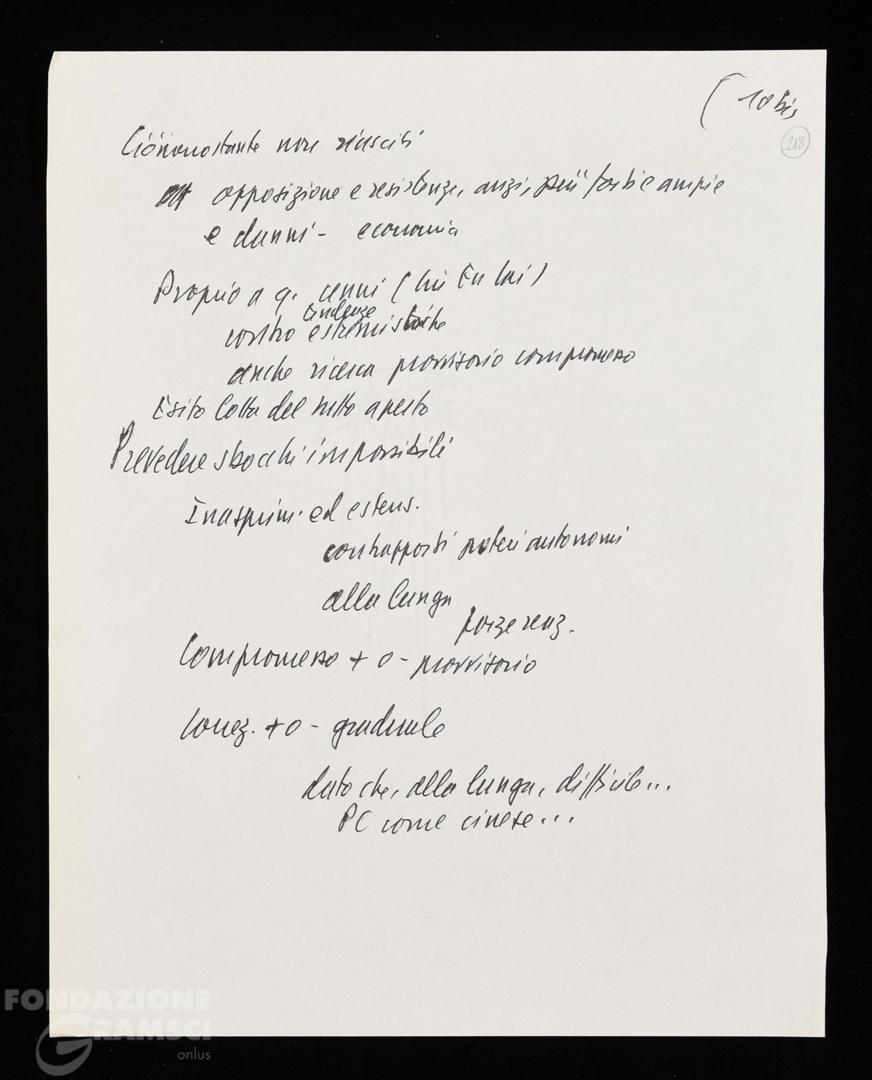 ( 10 bis
218
Ciònonostante non riusciti
opposizione e resistenze, anzi, più forti e ampie
e danni - economia
Proprio a q. cenni (Ciu En Lai)
tendenze
contro estremistiche
anche ricerca provvisorio compromesso
Esito lotta del tutto aperto
Prevedere sbocchi impossibile
Inasprim. ed estens.
contrapposti poteri autonomi
alla lunga
forze reaz.
Compromesso + o - provvisorio
Correz. + o - graduale
dato che, alla lunga, difficile...
PC come cinese...
FONDAZIONE
GRAMSCI
onlus